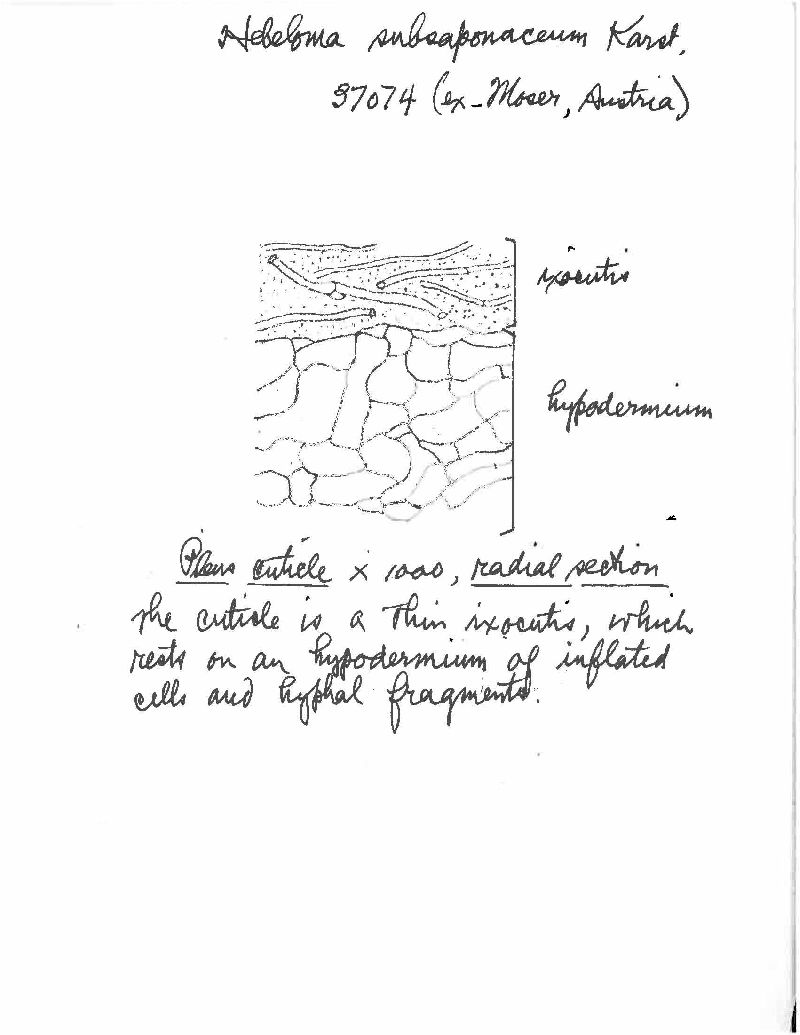 Hebeloma subsaponaceum Karst.
37074 (ex-Moser, Austria)
ixocutis
hypodermium
Pileus cuticle x 1000, radial section
The cuticle is a thin ixocutis, which
rests on an hypodermium of inflated
cells and hyphal fragments.